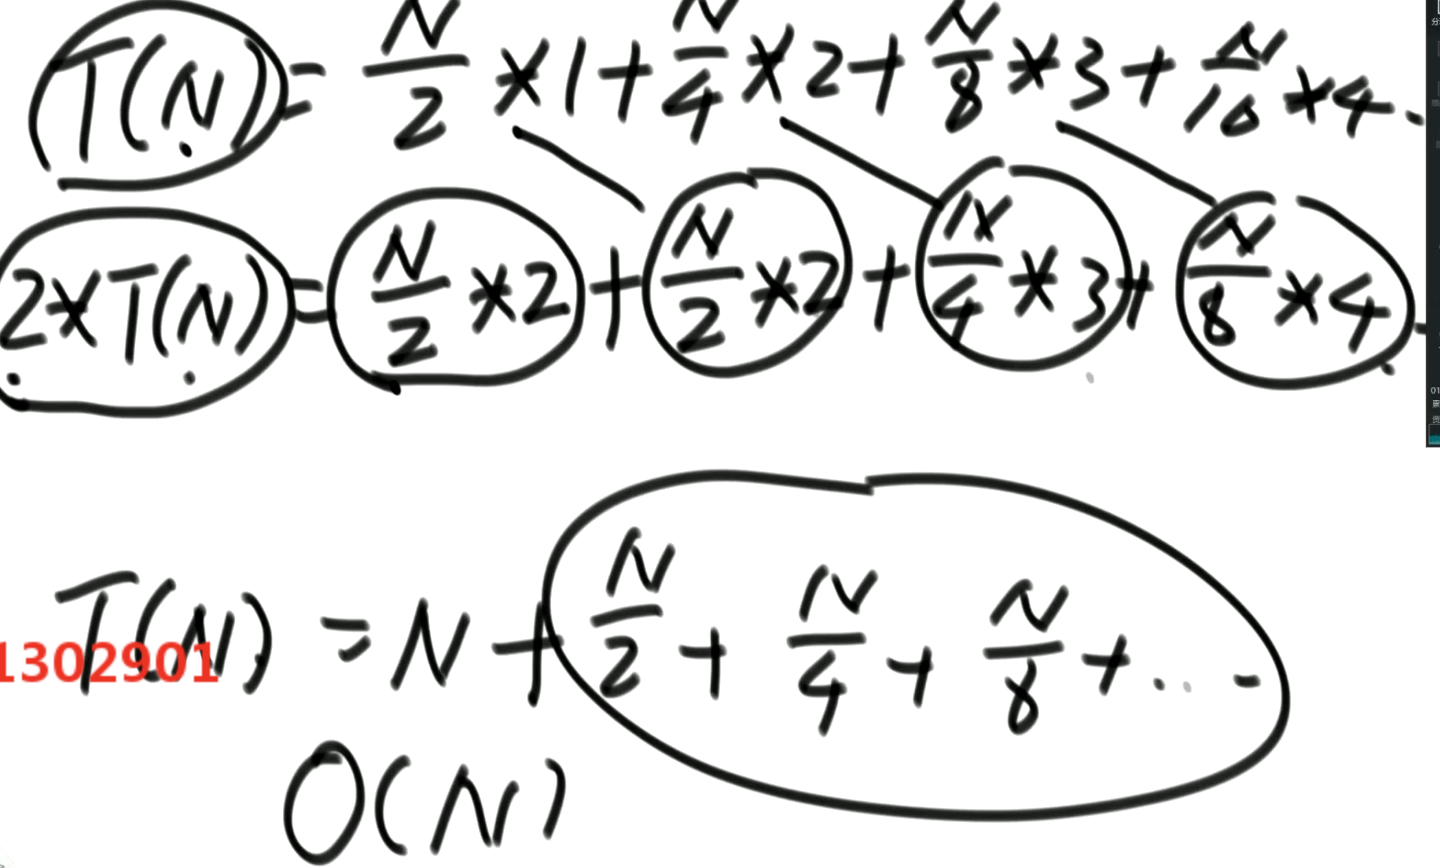 T(N) = N/2 × 1 + N/4 × 2 + N/8 × 3 + N/16 × 4 ..
2×T(N) = N/2 × 2 + N/2 × 2 + N/4 × 3 + N/8 × 4 ..
T(N) = N + N/2 + N/4 + N/8 + ...
1302901
O(N)